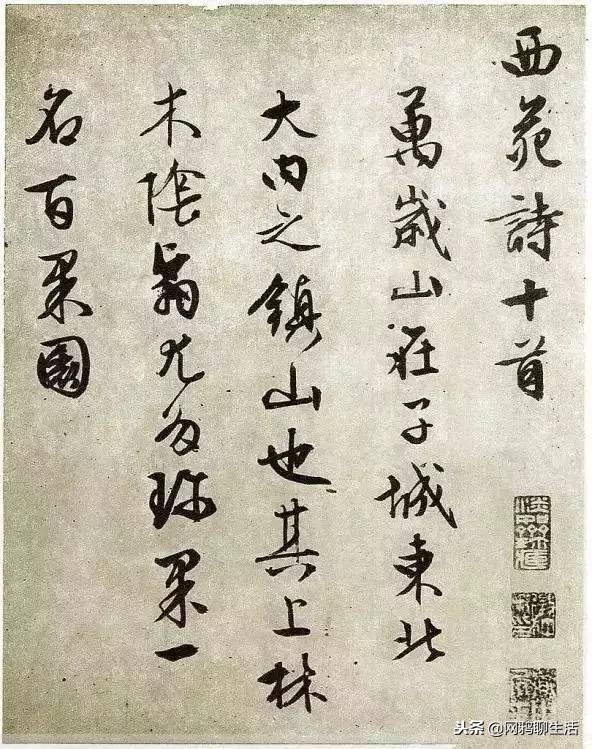 西苑詩十首
萬歲山在子城東北
大内之鎮山也其上林
木陰翳尤多珍果一
名百果園
头条 @网鸦聊生活